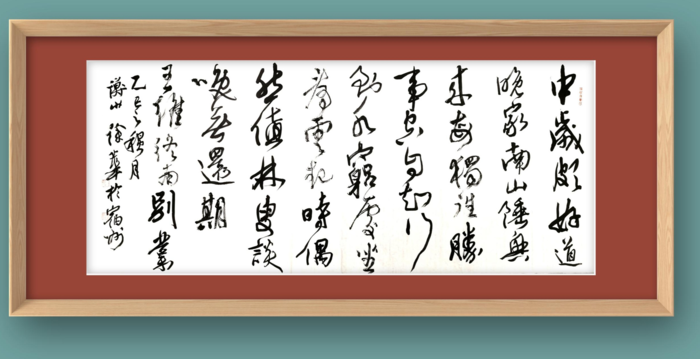 中歲頗好道
晚家南山陲興
来每獨往勝
事空自知行
到水窮處坐
看雲起時偶
然值林叟談
咲無還期
王維終南別業
乙巳穐月
山徐於宿州